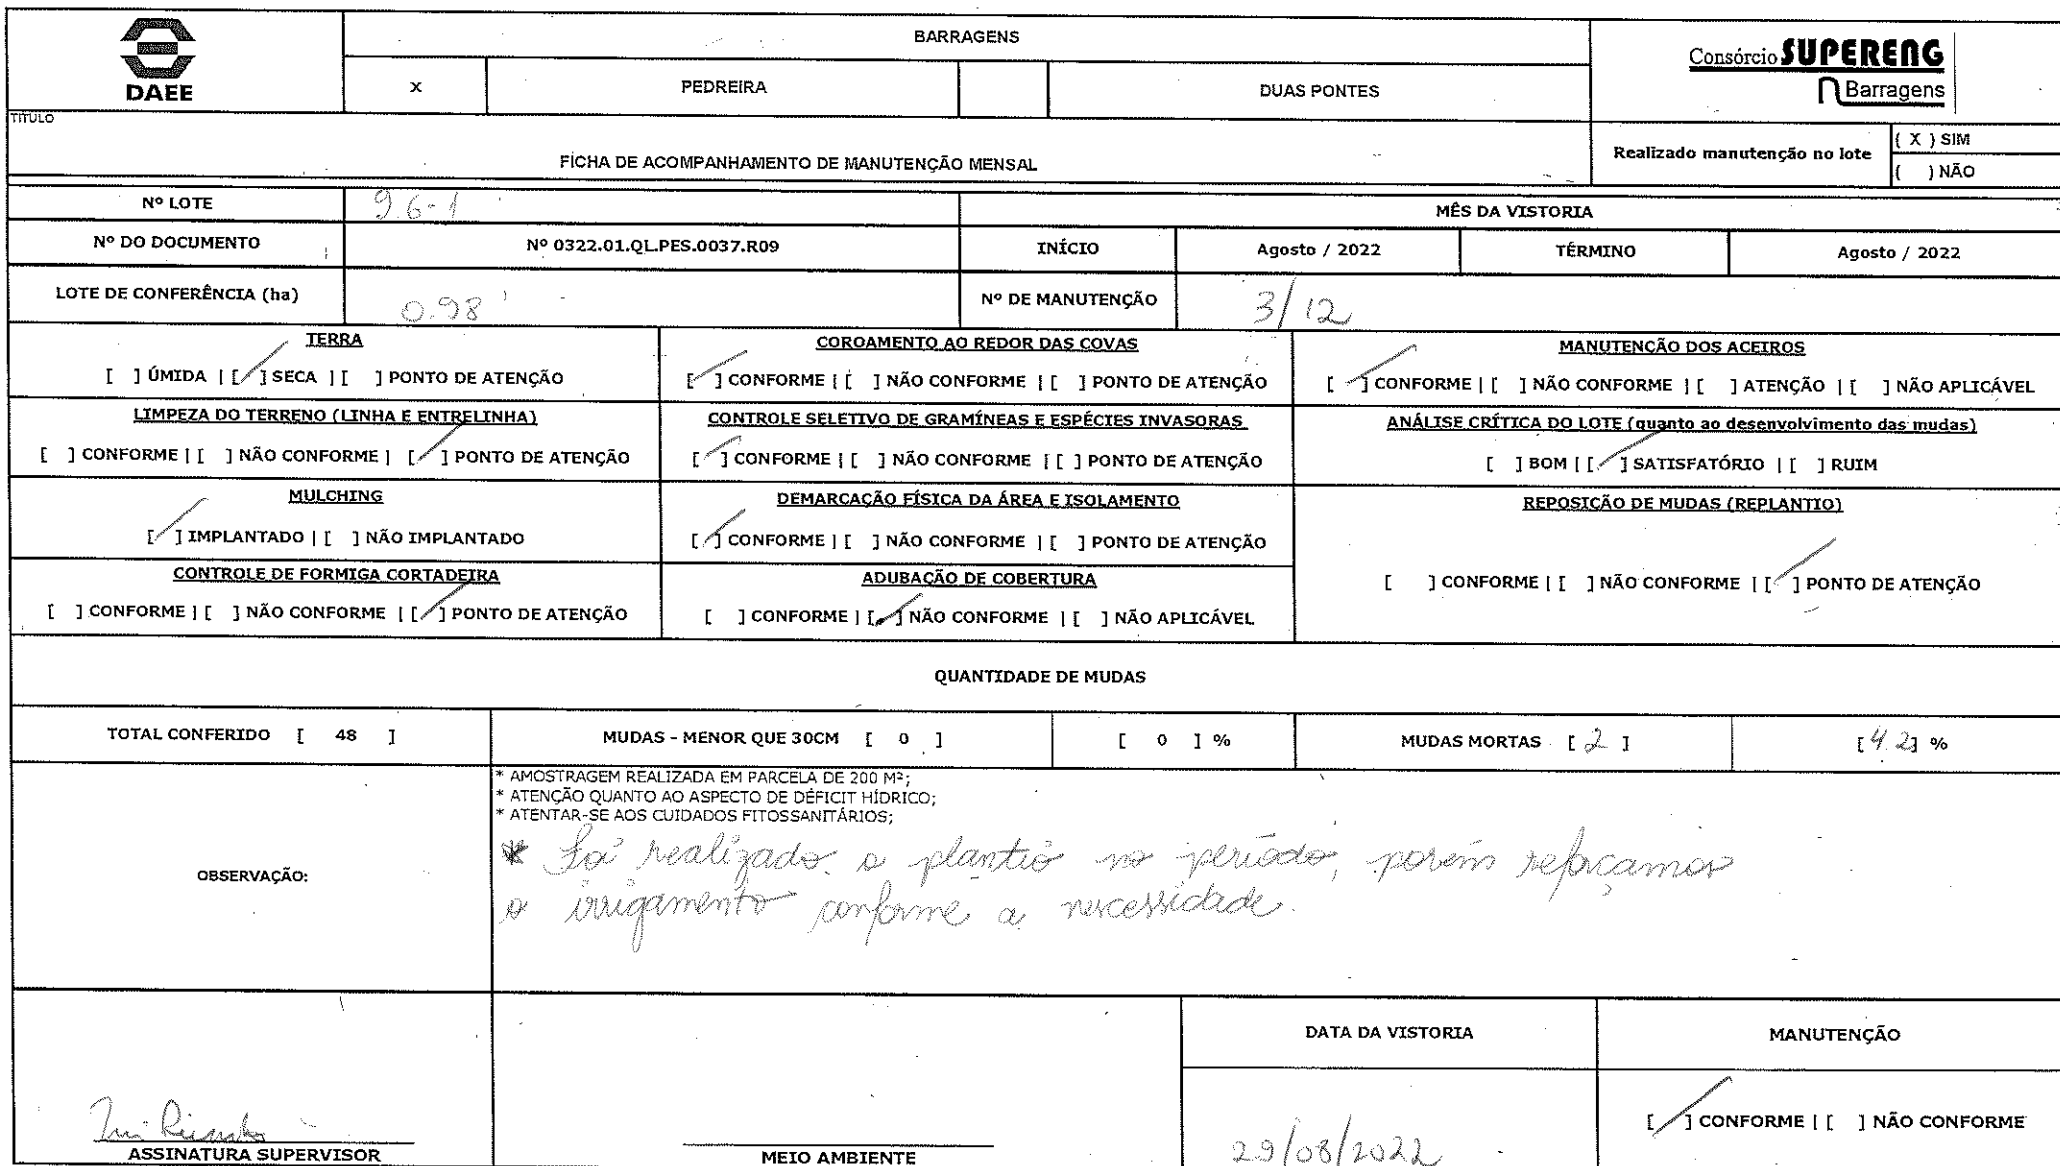 DAEE
BARRAGENS
X PEDREIRA DUAS PONTES
Consórcio SUPERENG
Barragens
TÍTULO
FICHA DE ACOMPANHAMENTO DE MANUTENÇÃO MENSAL
Realizado manutenção no lote
( X ) SIM
( ) NÃO
Nº LOTE 9.6-1
MÊS DA VISTORIA
Nº DO DOCUMENTO Nº 0322.01.QL.PES.0037.R09 INÍCIO Agosto / 2022 TÉRMINO Agosto / 2022
LOTE DE CONFERÊNCIA (ha) 0.98 Nº DE MANUTENÇÃO 3/12
TERRA
[ ] ÚMIDA | [/] SECA | [ ] PONTO DE ATENÇÃO
COROAMENTO AO REDOR DAS COVAS
[/] CONFORME | [ ] NÃO CONFORME | [ ] PONTO DE ATENÇÃO
MANUTENÇÃO DOS ACEIROS
[/] CONFORME | [ ] NÃO CONFORME | [ ] ATENÇÃO | [ ] NÃO APLICÁVEL
LIMPEZA DO TERRENO (LINHA E ENTRELINHA)
[ ] CONFORME | [ ] NÃO CONFORME | [/] PONTO DE ATENÇÃO
CONTROLE SELETIVO DE GRAMÍNEAS E ESPÉCIES INVASORAS
[/] CONFORME | [ ] NÃO CONFORME | [ ] PONTO DE ATENÇÃO
ANÁLISE CRÍTICA DO LOTE (quanto ao desenvolvimento das mudas)
[ ] BOM | [/] SATISFATÓRIO | [ ] RUIM
MULCHING
[/] IMPLANTADO | [ ] NÃO IMPLANTADO
DEMARCAÇÃO FÍSICA DA ÁREA E ISOLAMENTO
[/] CONFORME | [ ] NÃO CONFORME | [ ] PONTO DE ATENÇÃO
REPOSIÇÃO DE MUDAS (REPLANTIO)
[ ] CONFORME | [ ] NÃO CONFORME | [/] PONTO DE ATENÇÃO
CONTROLE DE FORMIGA CORTADEIRA
[ ] CONFORME | [ ] NÃO CONFORME | [/] PONTO DE ATENÇÃO
ADUBAÇÃO DE COBERTURA
[ ] CONFORME | [/] NÃO CONFORME | [ ] NÃO APLICÁVEL
QUANTIDADE DE MUDAS
TOTAL CONFERIDO [ 48 ] MUDAS - MENOR QUE 30CM [ 0 ] [ 0 ] % MUDAS MORTAS [ 2 ] [ 4.2 ] %
OBSERVAÇÃO:
* AMOSTRAGEM REALIZADA EM PARCELA DE 200 M²;
* ATENÇÃO QUANTO AO ASPECTO DE DÉFICIT HÍDRICO;
* ATENTAR-SE AOS CUIDADOS FITOSSANITÁRIOS;
* realizado o plantio no período, porém
o irrigamento conforme a necessidade.
ASSINATURA SUPERVISOR
MEIO AMBIENTE
DATA DA VISTORIA
29/08/2022
MANUTENÇÃO
[/] CONFORME | [ ] NÃO CONFORME